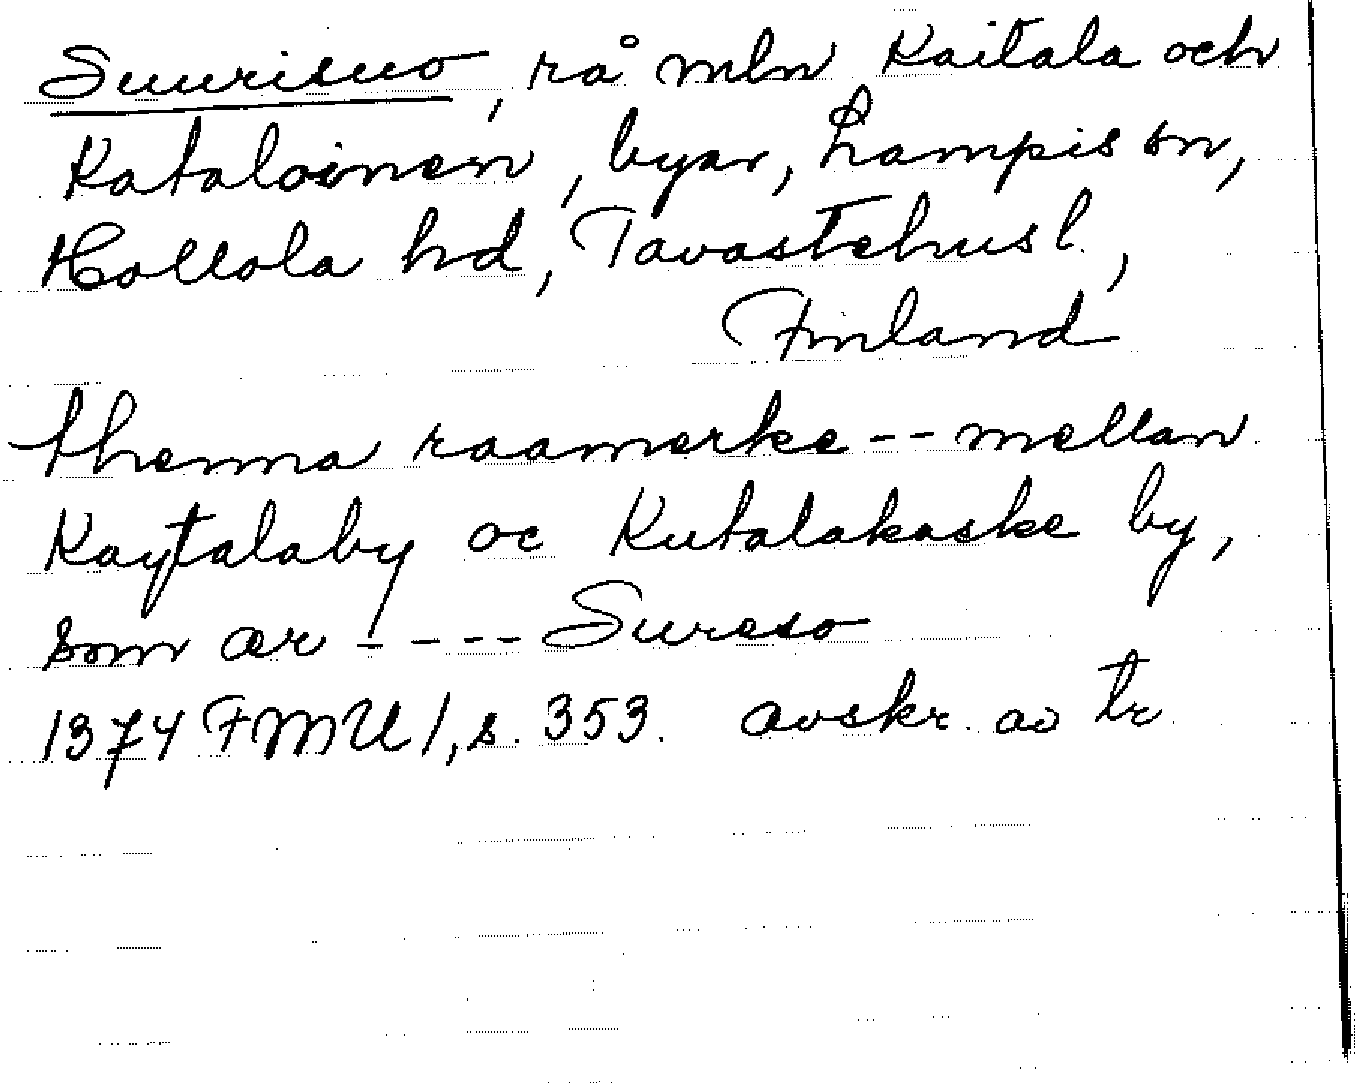 Suurisuo, rå mln Kaitala och
Kataloinen, byar, Lampis sn,
Hollola hd, Tavastehus l.,
Finland
thenna raamerke -- mellan
Kaytalaby oc Kutalakaske by,
som ær - - - - Sureso
1374 FMU 1, s. 353. avskr. av tr